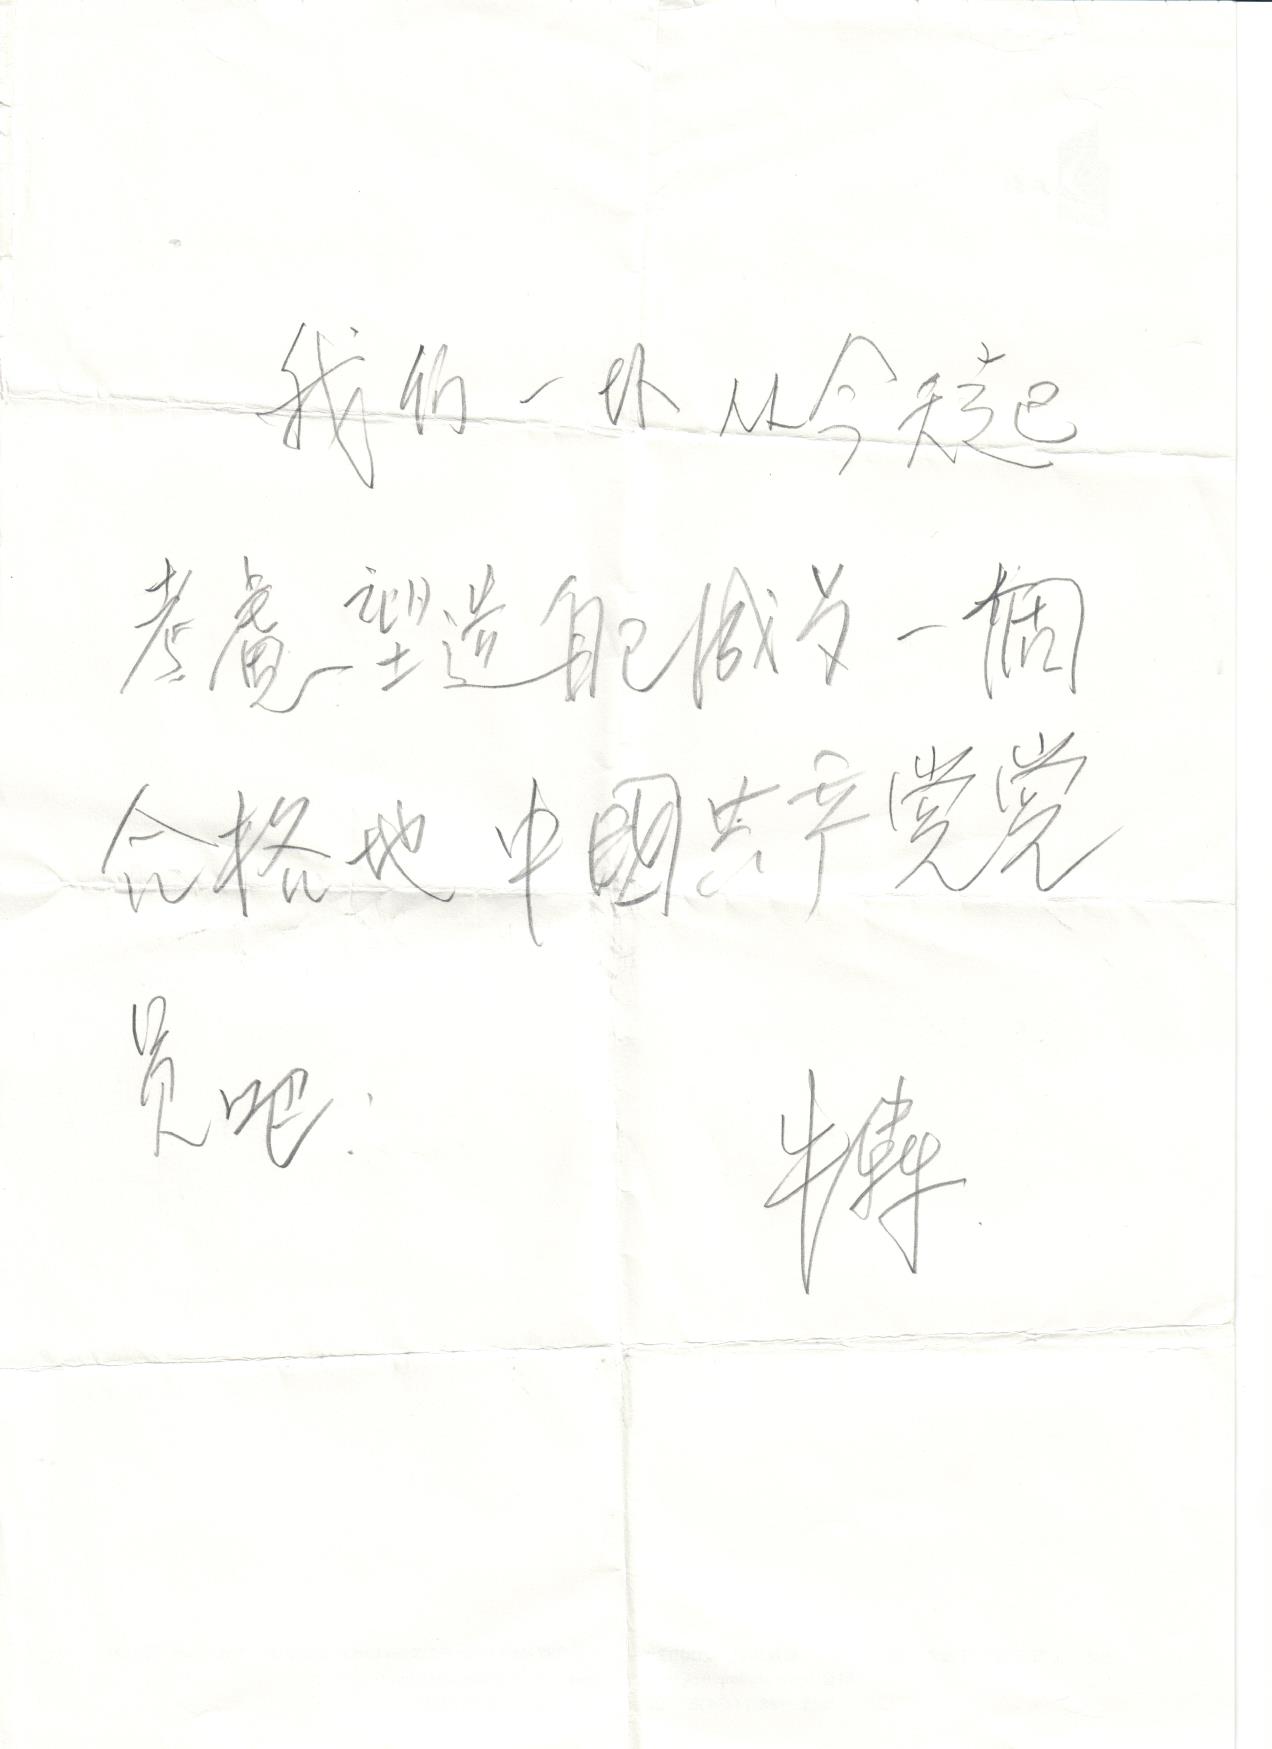 我们一 从今天起
考慮 塑造自己 成为一個
合格地中國共产党党
员吧.
牛犇